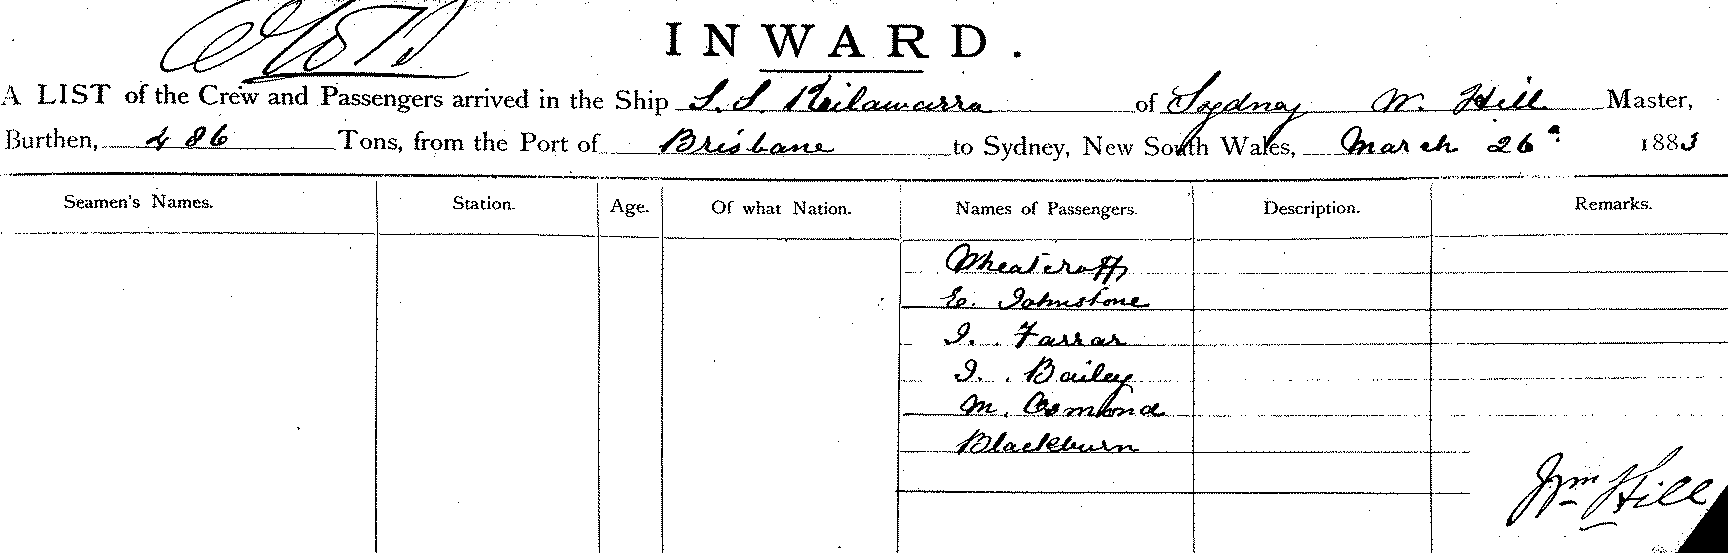 INWARD.
A LIST of the Crew and Passengers arrived in the Ship S. S. Keilawarra of Sydney W. Hill Master,
Burthen, 486 Tons, from the Port of Brisbane to Sydney, New South Wales, March 26th 1883
Seamen's Names. Station. Age. Of what Nation. Names of Passengers. Description. Remarks.
Wheatcroft
E. Johnstone
J. Farrar
J. Bailey
M. Osmond
Blackburn
Wm Hill